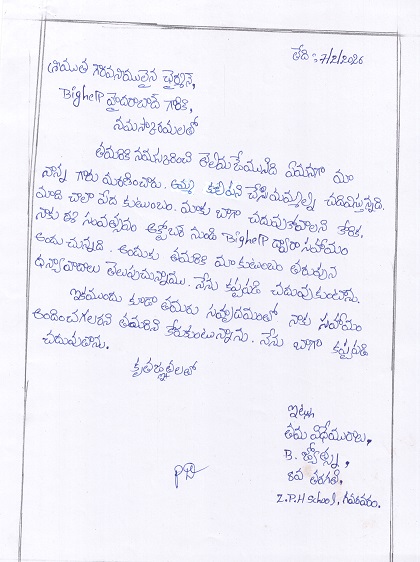 తేది : 7/2/2026
శ్రీయుత గౌరవనీయులైన ఛైర్మెన్,
Bighelp హైదరాబాద్ గారికి,
నమస్కారములతో
తమరికి నమస్కరించి తెలియజేయునది ఏమనగా మా
నాన్న గారు మరణించారు. అమ్మ కూలిపని చేసి మమ్మల్ని చదివిస్తున్నది.
మాది చాలా పేద కుటుంబం. మాకు బాగా చదువుకోవాలని కోరిక.
నాకు ఈ సంవత్సరం అక్టోబర్ నుండి Bighelp ద్వారా సహాయం
అందుచున్నది. అందుకు తమరికి మా కుటుంబం తరుపున
ధన్యవాదాలు తెలుపుచున్నాము. నేను కష్టపడి చదువుకుంటాను.
ఇకముందు కూడా తమరు సహృదయంతో నాకు సహాయం
అందించగలరని తమరిని కోరుకుంటున్నాను. నేను బాగా కష్టపడి
చదువుతాను.
కృతజ్ఞతలతో
ఇట్లు
తమ విధేయురాలు,
B. జ్యోత్స్న,
8వ తరగతి,
Z.P.H School, గవరవరం.